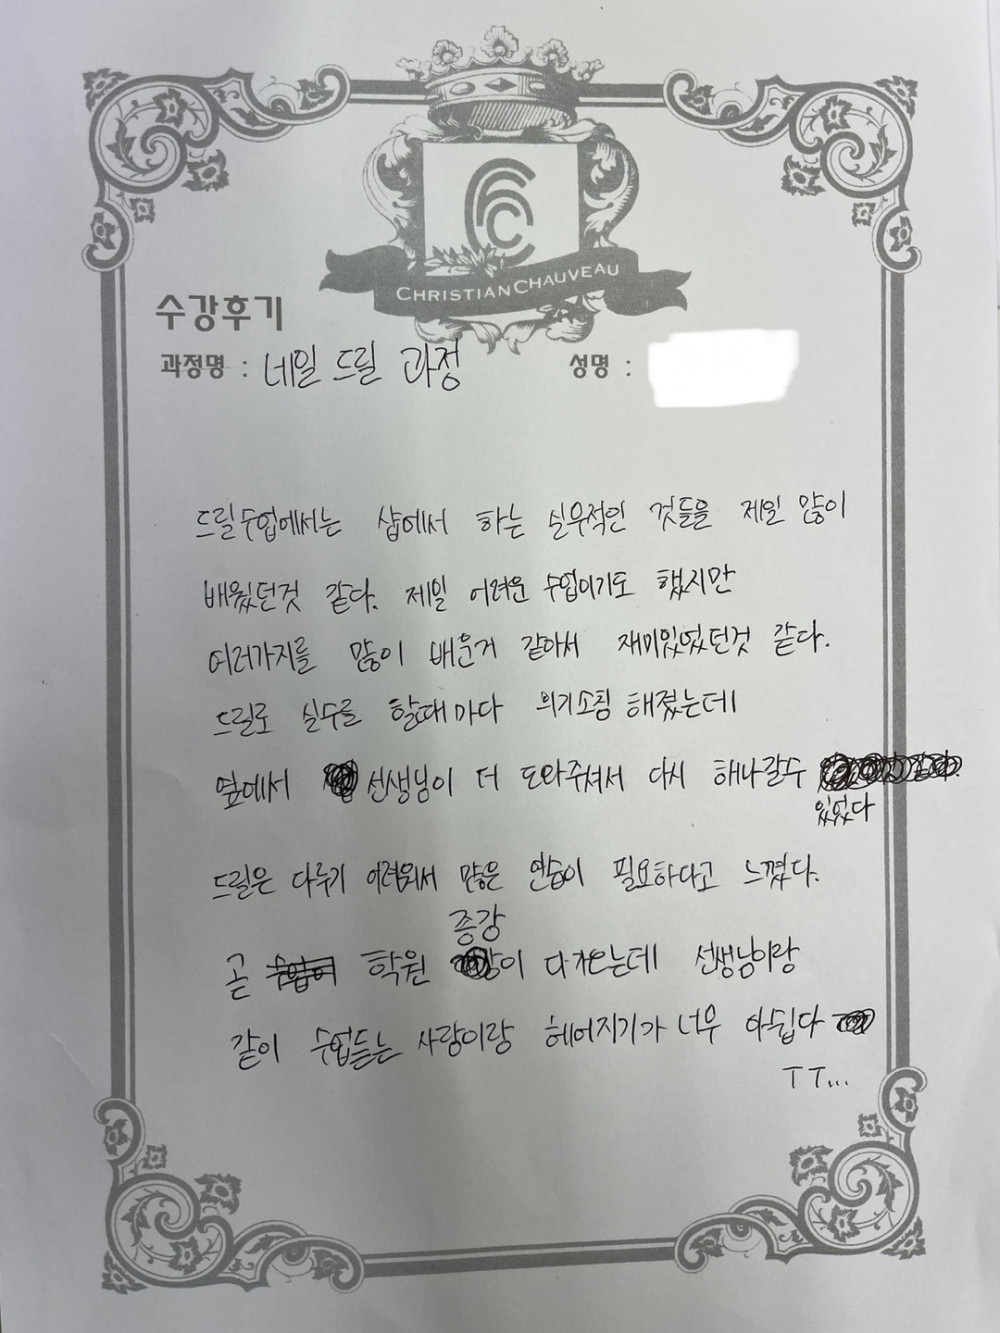 CHRISTIAN CHAUVEAU
수강후기
과정명 : 네일 드릴 과정 성명 :
드릴수업에서는 샵에서 하는 실무적인 것들을 제일 많이
배웠던것 같다. 제일 어려운 수업이기도 했지만
여러가지를 많이 배운거 같아서 재미있었던것 같다.
드릴로 실수를 할때마다 의기소침 해졌는데
옆에서 선생님이 더 도와주셔서 다시 해나갈수
있었다
드릴은 다루기 어려워서 많은 연습이 필요하다고 느꼈다.
종강
곧 학원 이 다가오는데 선생님이랑
같이 수업듣는 사람이랑 헤어지기가 너무 아쉽다
TT...